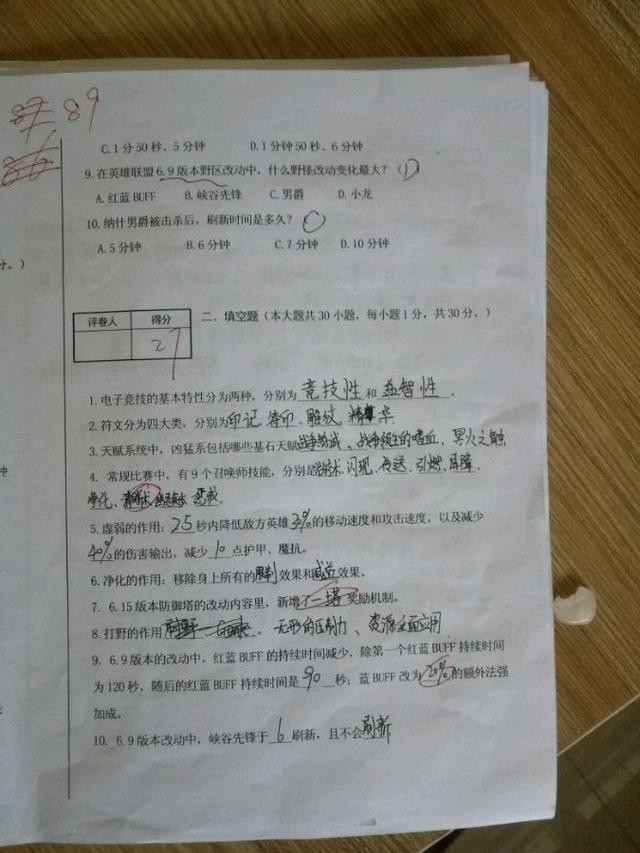 87 89
86
C.1 分 50 秒、5 分钟 D.1 分钟 50 秒、6 分钟
9.在英雄联盟 6.9 版本野区改动中，什么野怪改动变化最大？（D）
A.红蓝 BUFF B.峡谷先锋 C.男爵 D.小龙
10.纳什男爵被击杀后，刷新时间是多久？（ ）
A.5 分钟 B.6 分钟 C.7 分钟 D.10 分钟
分。）
评卷人 得分
27
二、填空题（本大题共 30 小题，每小题 1 分，共 30 分。）
1.电子竞技的基本特性分为两种，分别为 竞技性 和 益智性 。
2.符文分为四大类，分别为印记、符印、雕纹、精华
3.天赋系统中，凶猛系包括哪些基石天赋战争热诚、战争领主的嗜血、冥火之触
4. 常规比赛中，有 9 个召唤师技能，分别是治疗术、闪现、传送、引燃、屏障、
净化、清晰术 惩戒。
5.虚弱的作用：2.5 秒内降低敌方英雄30%的移动速度和攻击速度，以及减少
40%的伤害输出。减少 10 点护甲、魔抗。
6.净化的作用：移除身上所有的限制效果和减益效果。
7. 6.15 版本防御塔的改动内容里，新增了一塔奖励机制。
8.打野的作用 。无形的压制力、资源全面应用
9. 6.9 版本的改动中，红蓝 BUFF 的持续时间减少，除第一个红蓝 BUFF 持续时间
为 120 秒，随后的红蓝 BUFF 持续时间是 90 秒；蓝 BUFF 改为 20% 的额外法强
加成。
10. 6.9 版本改动中，峡谷先锋于 6 刷新，且不会刷新
钟